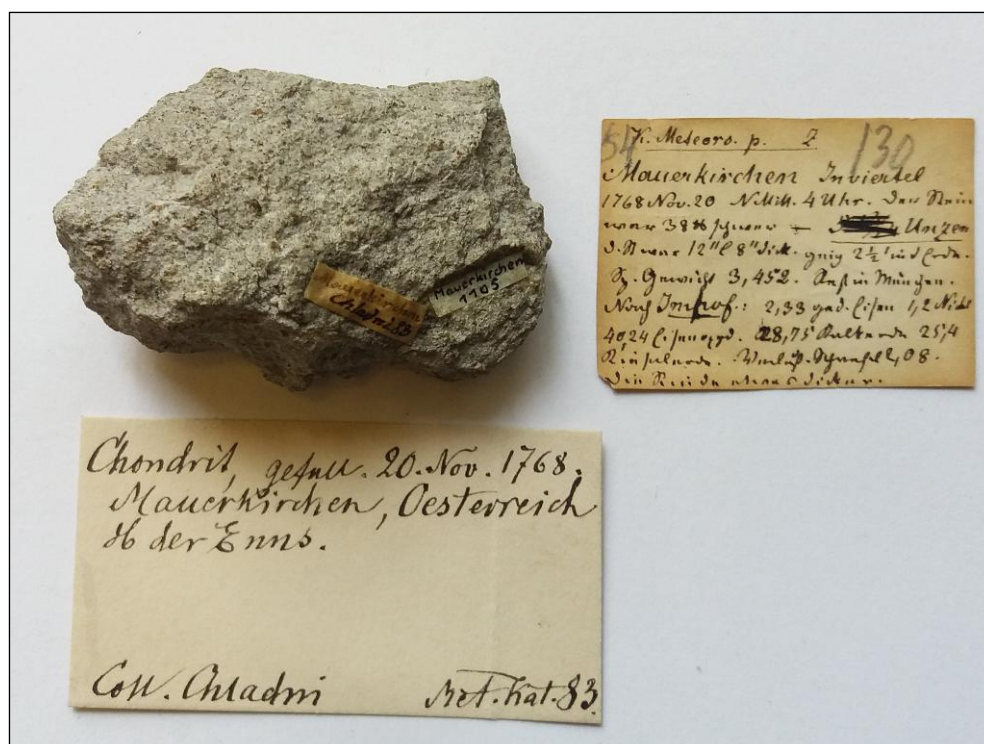 Mauerkirchen
Chladni 83
Mauerkirchen
1105
54 K. Meteoro. p. Z 130
Mauerkirchen Inviertel
1768 Nov. 20 N. Mitt. 4 Uhr. Der Stein
war 38 schwer Unzen
d. St war 12" 8" dick. ging 2½' in d Erde.
Sp. Gewicht 3,452. Rest in München.
Nach Imhof: 2,33 ged. Eisen 1,2 Nickel
40,24 Eisenoxyd. 28,75 Talkerde 25,4
Kieselerde. Verlust. Schwefel 2,08.
Die Rinde etwas dicker.
Chondrit, gefall. 20. Nov. 1768.
Mauerkirchen, Oesterreich
ob der Enns.
Coll. Chladni Met. Kat. 83.